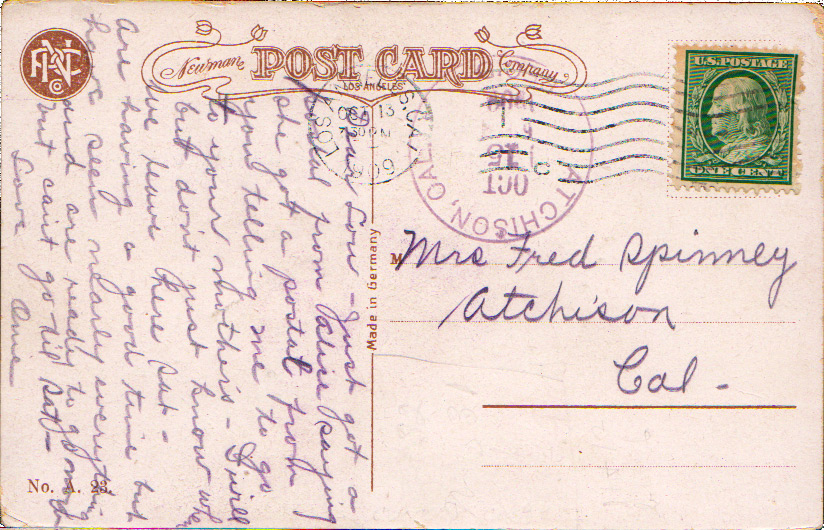 Newman POST CARD Company
LOS ANGELES
No. A. 23.
Made in Germany
U.S. POSTAGE
ONE CENT
LOS ANGELES, CAL.
OCT 13
7 30 PM
1909
ATCHISON, CAL.
OCT
15
190
M
Mrs Fred Spinney
Atchison
Cal-
Dear Lou - Just got a
postal from Alice saying
she got a postal from
you telling me to go
to your mother's - I will
but don't just know when
we leave here Sat -
Are having a good time but
have seen nearly everything
and are ready to go
but can't go till Sat -
Love